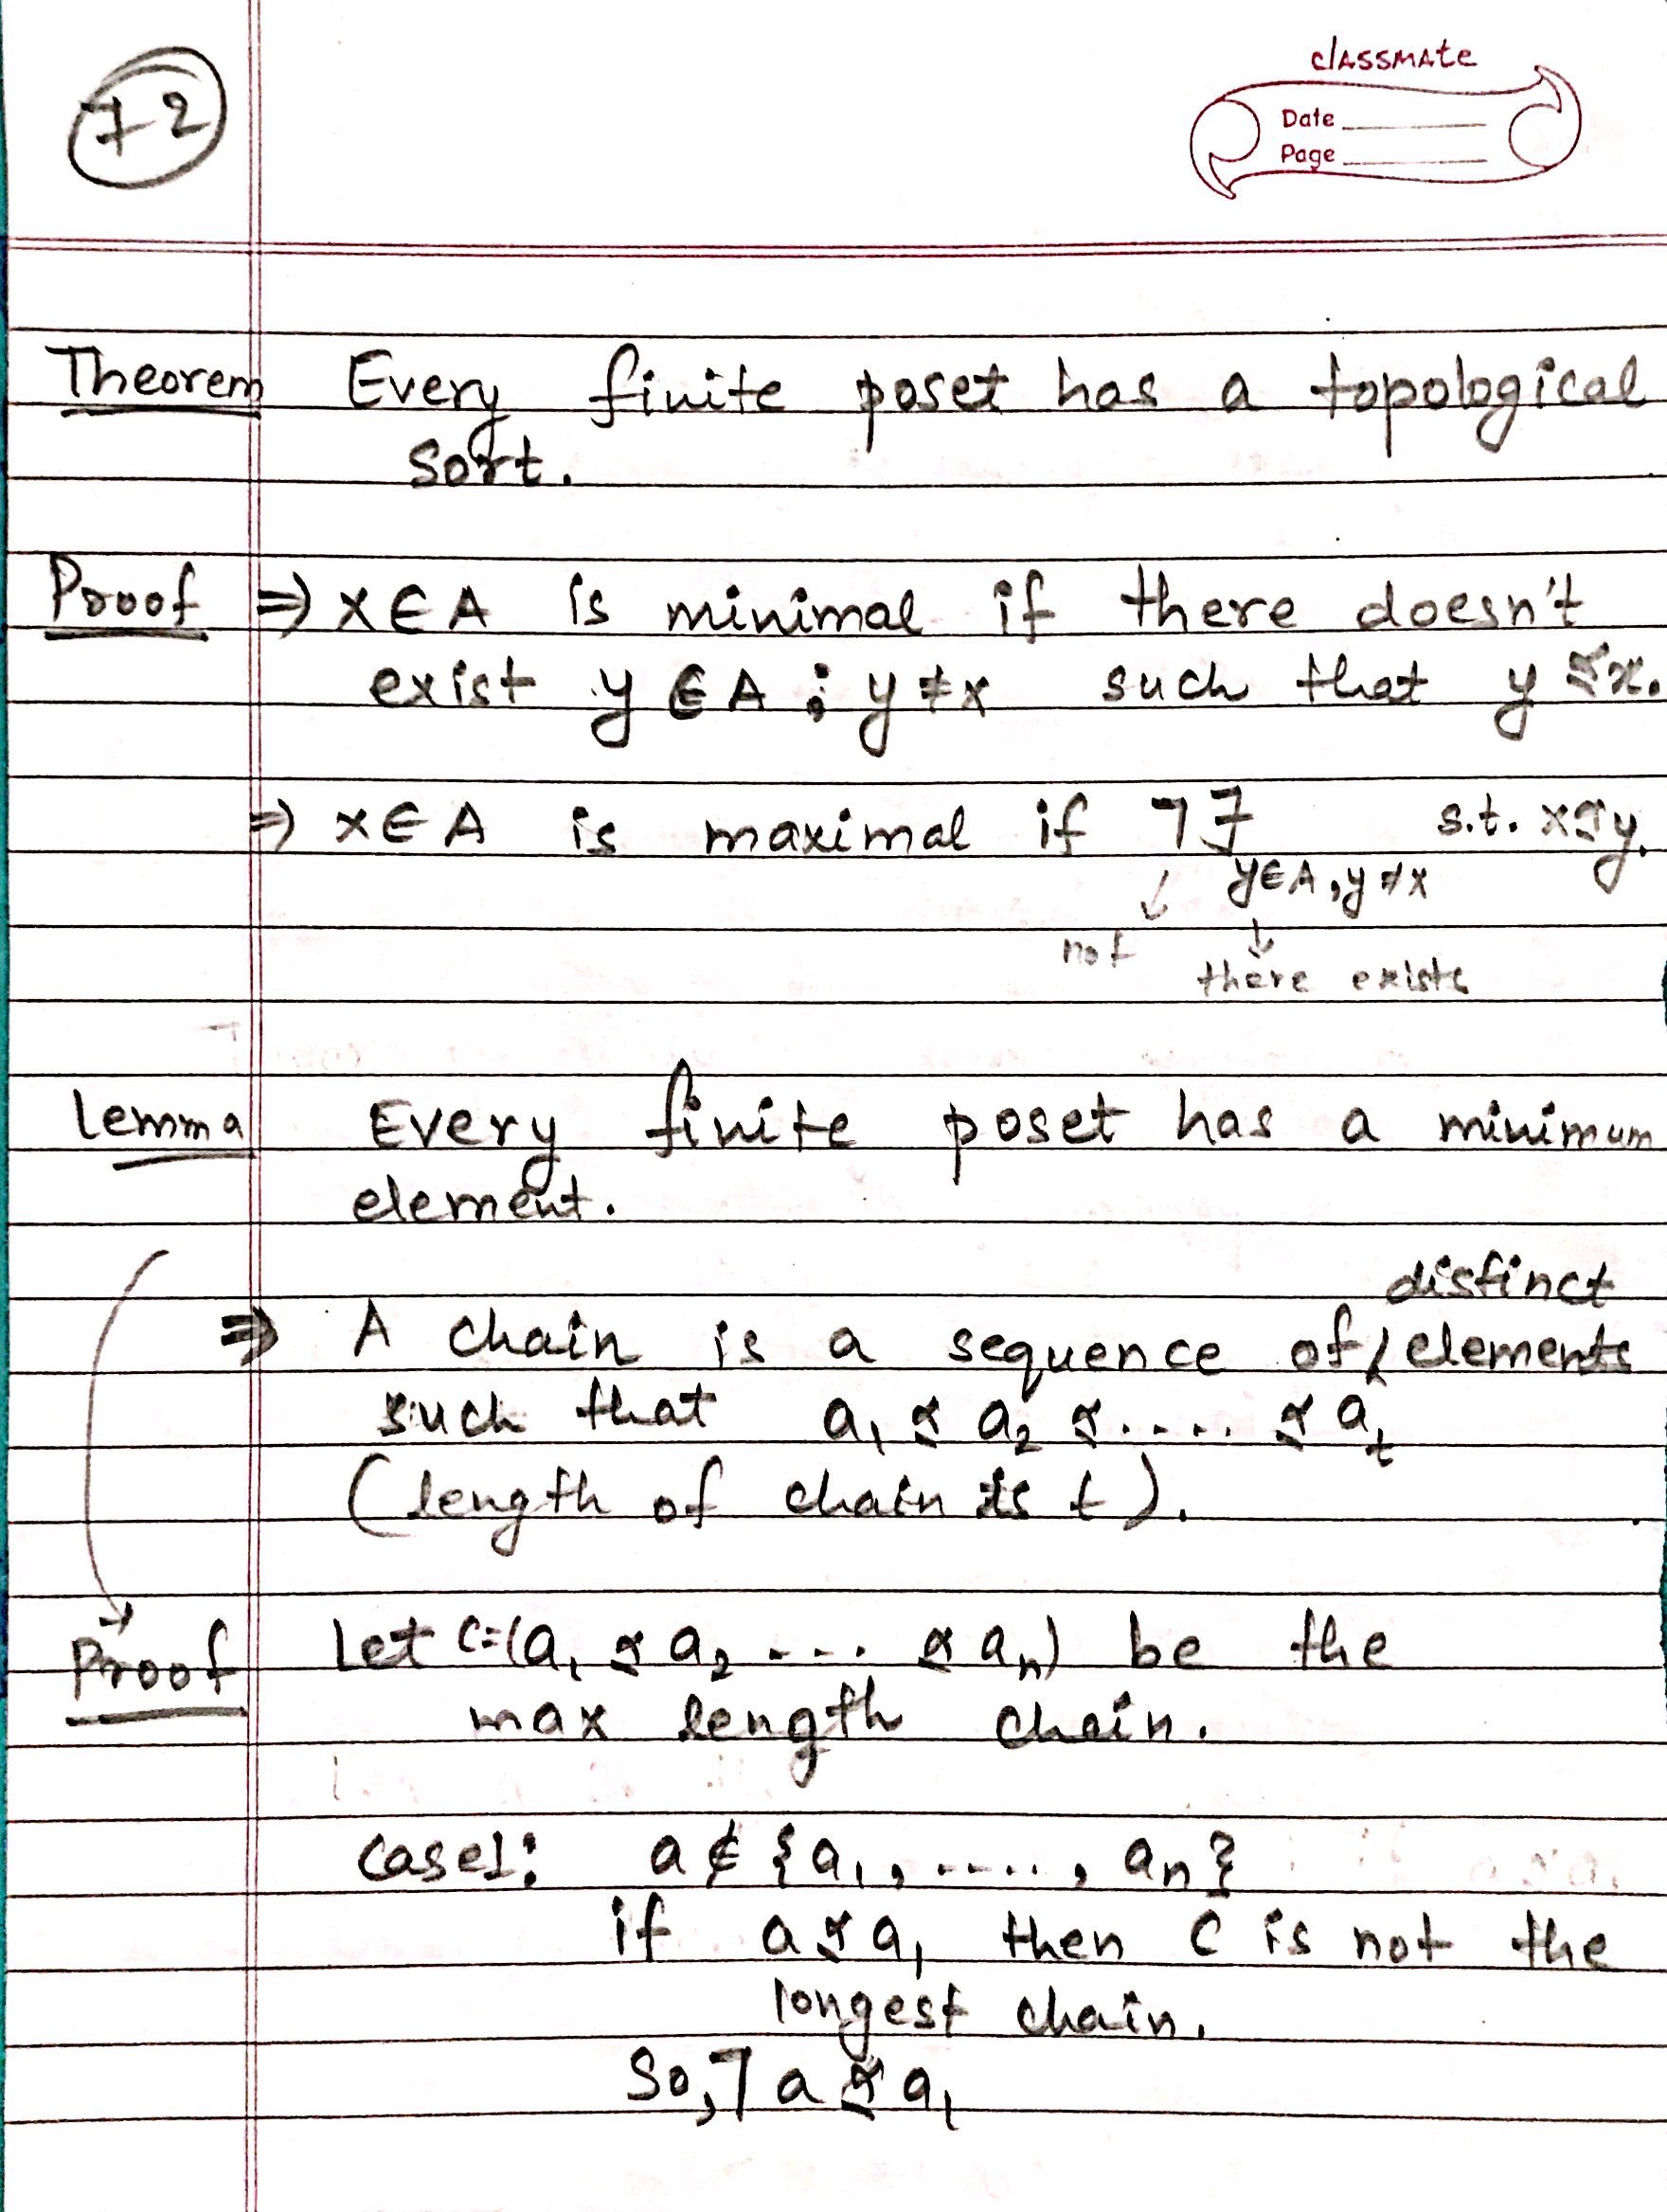 72
classmate
Date
Page
Theorem Every finite poset has a topological
sort.
Proof ⇒ x ∈ A is minimal if there doesn't
exist y ∈ A ; y ≠ x such that y ≼ x.
⇒ x ∈ A is maximal if ¬∃ s.t. x ≼ y.
y ∈ A, y ≠ x
not
there exists
Lemma Every finite poset has a minimum
element.
distinct
⇒ A chain is a sequence of elements
such that a₁ ≼ a₂ ≼ .... ≼ aₜ
(length of chain is t).
Proof Let C=(a₁ ≼ a₂ .... ≼ aₙ) be the
max length chain.
case1: a ∉ {a₁, ....., aₙ}
if a ≼ a₁ then C is not the
longest chain.
So, ¬ a ≼ a₁